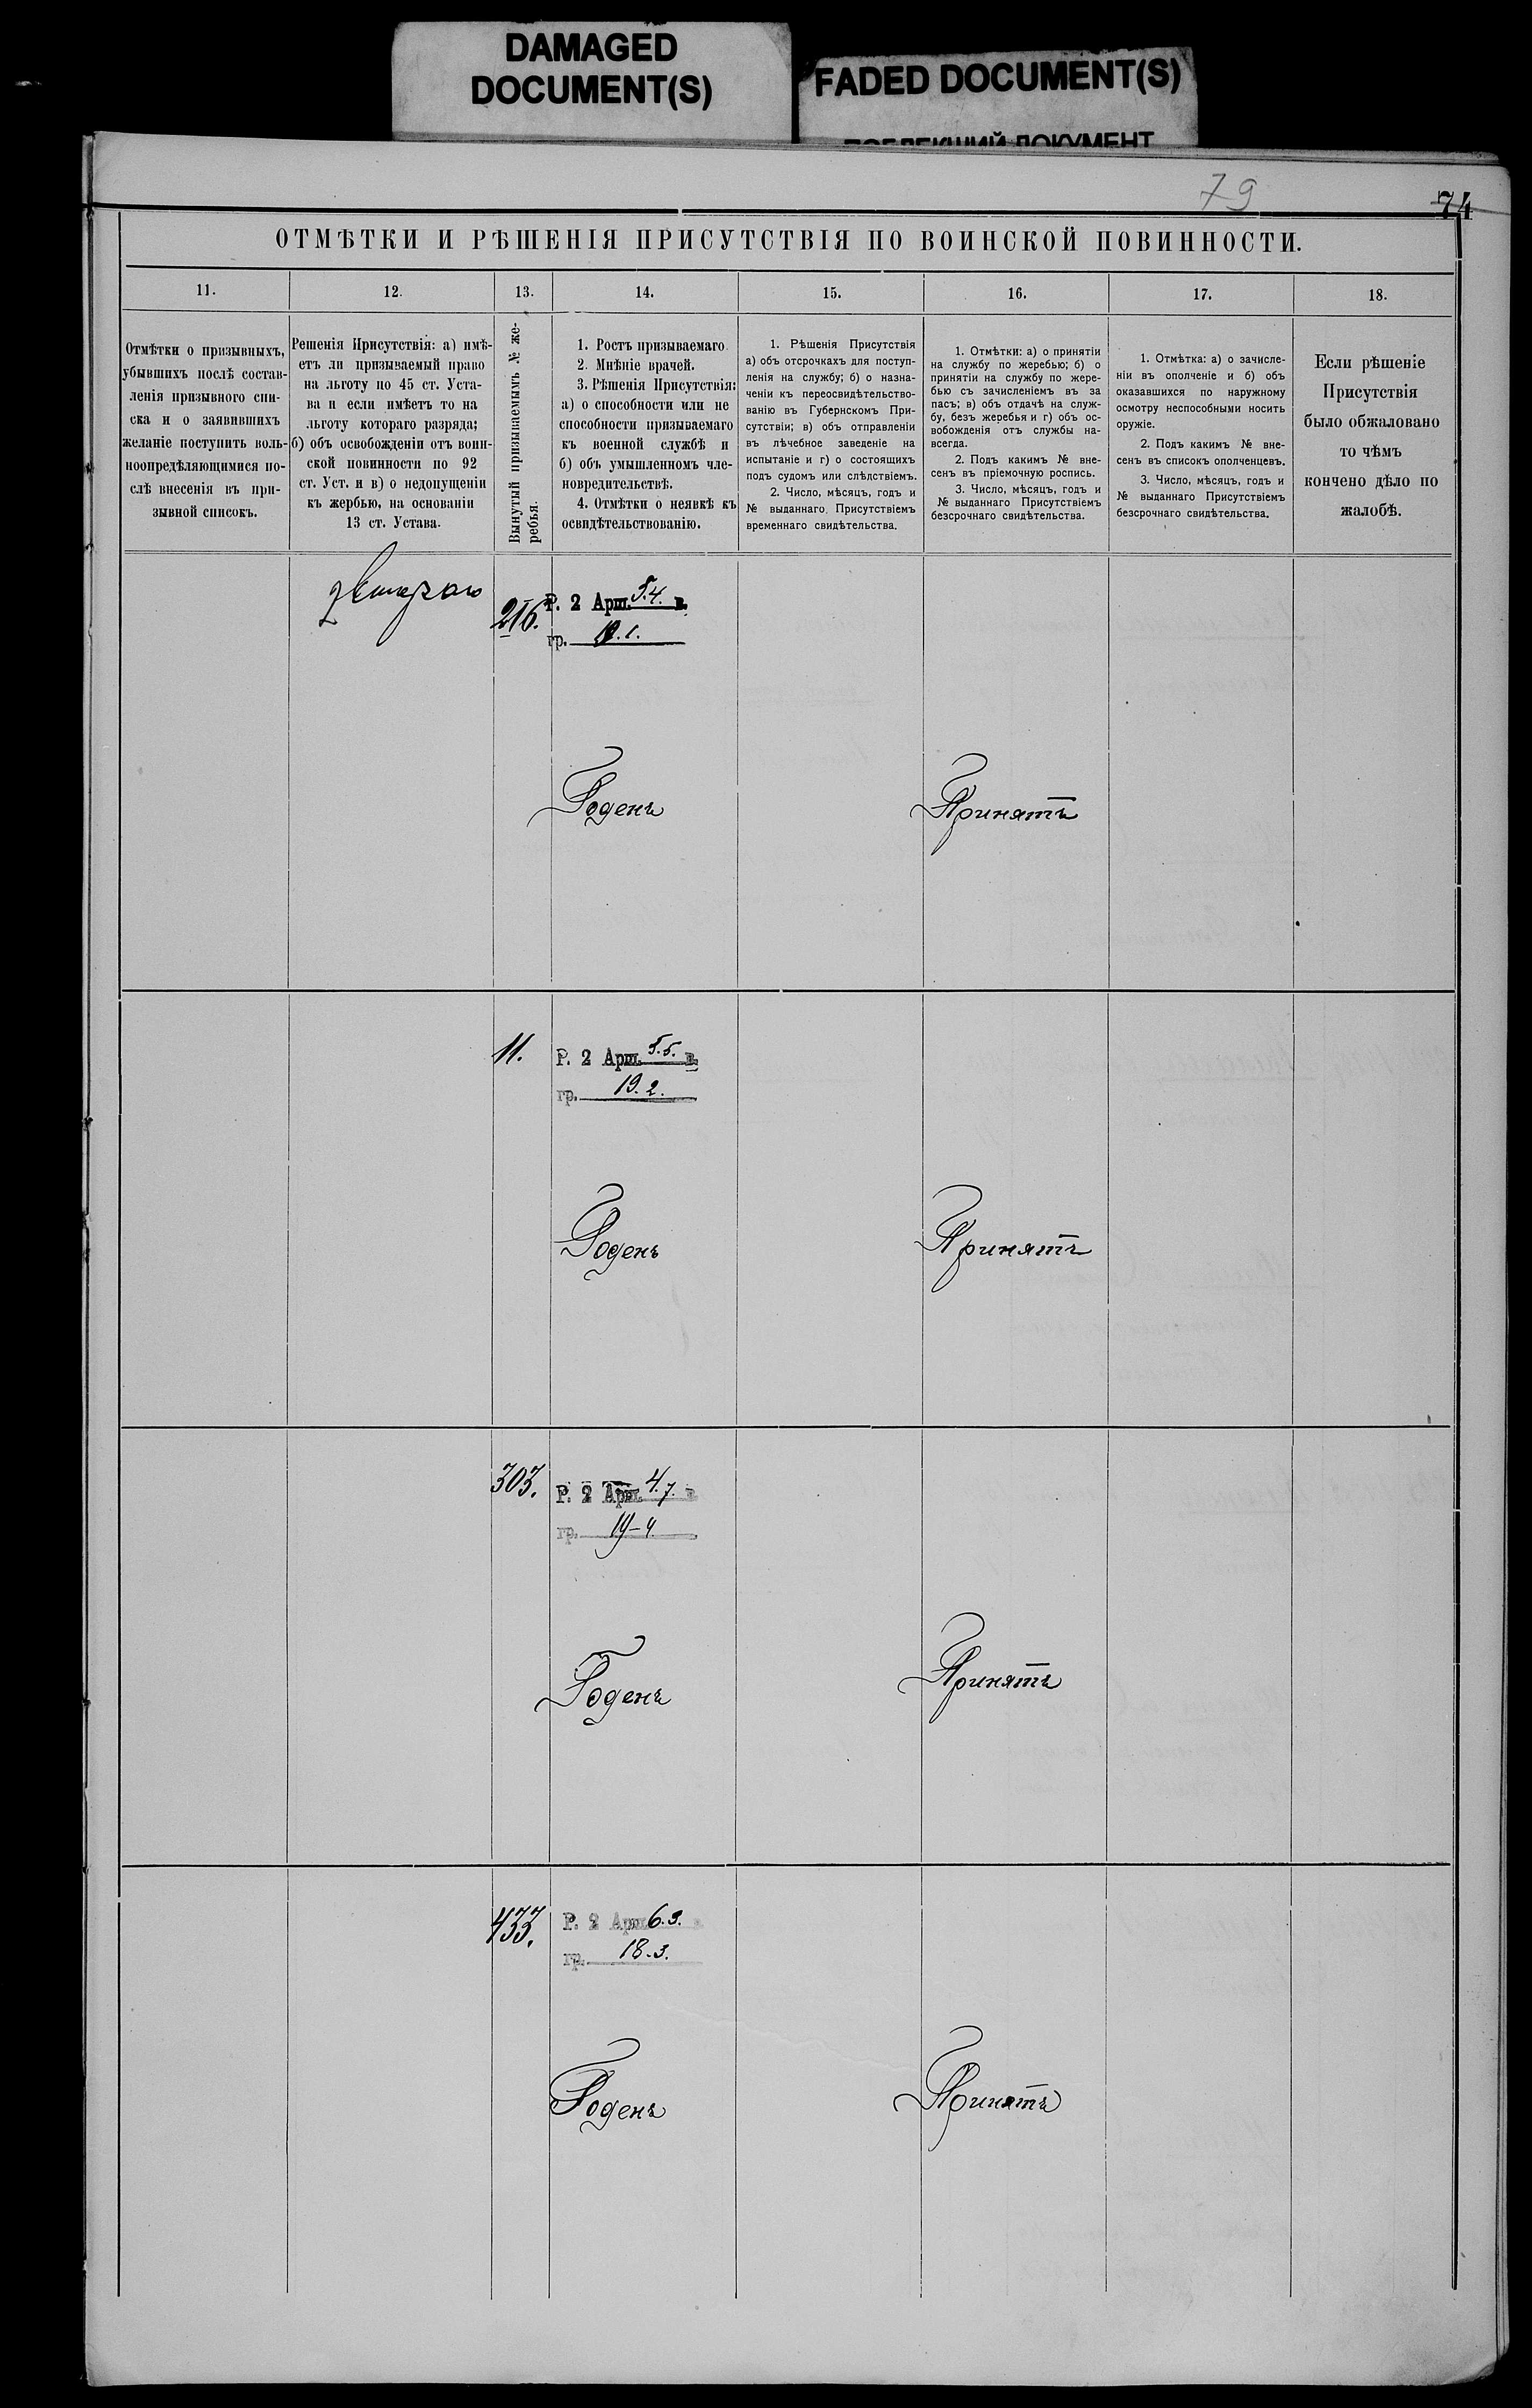 DAMAGED
DOCUMENT(S)
FADED DOCUMENT(S)
ПОБЛЕКШИЙ ДОКУМЕНТ
79
74
ОТМѢТКИ И РѢШЕНІЯ ПРИСУТСТВІЯ ПО ВОИНСКОЙ ПОВИННОСТИ.
11.
Отмѣтки о призывныхъ,
убывшихъ послѣ состав-
ленія призывного спи-
ска и о заявившихъ
желаніе поступить воль-
ноопредѣляющимися по-
слѣ внесенія въ при-
зывной списокъ.
12.
Решенія Присутствія: а) имѣ-
етъ ли призываемый право
на льготу по 45 ст. Уста-
ва и если имѣетъ то на
льготу котораго разряда;
б) объ освобожденіи отъ воин-
ской повинности по 92
ст. Уст. и в) о недопущеніи
къ жербью, на основаніи
13 ст. Устава.
13.
Вынутый призываемымъ № же-
ребья.
14.
1. Ростъ призываемаго.
2. Мнѣніе врачей.
3. Рѣшенія Присутствія:
а) о способности или не
способности призываемаго
къ военной службѣ и
б) объ умышленномъ чле-
новредительствѣ.
4. Отмѣтки о неявкѣ къ
освидѣтельствованію.
15.
1. Рѣшенія Присутствія
а) объ отсрочкахъ для поступ-
ленія на службу; б) о назна-
ченіи къ переосвидѣтельство-
ванію въ Губернскомъ При-
сутствіи; в) объ отправленіи
въ лѣчебное заведеніе на
испытаніе и г) о состоящихъ
подъ судомъ или слѣдствіемъ.
2. Число, мѣсяцъ, годъ и
№ выданнаго Присутствіемъ
временнаго свидѣтельства.
16.
1. Отмѣтки: а) о принятіи
на службу по жеребью; б) о
принятіи на службу по жере-
бью съ зачисленіемъ въ за
пасъ; в) объ отдачѣ на служ-
бу, безъ жеребья и г) объ ос-
вобожденія отъ службы на-
всегда.
2. Подъ какимъ № вне-
сенъ въ пріемочную роспись.
3. Число, мѣсяцъ, годъ и
№ выданнаго Присутствіемъ
безсрочнаго свидѣтельства.
17.
1. Отмѣтка: а) о зачисле-
ніи въ ополченіе и б) объ
оказавшихся по наружному
осмотру неспособными носить
оружіе.
2. Подъ какимъ № вне-
сенъ въ списокъ ополченцевъ.
3. Число, мѣсяцъ, годъ и
№ выданнаго Присутствіемъ
безсрочнаго свидѣтельства.
18.
Если рѣшеніе
Присутствія
было обжаловано
то чѣмъ
кончено дѣло по
жалобѣ.
216.
Р. 2 Арш. 5.4. в.
гр.
Годенъ
Принятъ
11.
Р. 2 Арш. 5.5. в.
гр. 19.2.
Годенъ
Принятъ
303.
Р. 2 Арш. 4.7. в.
гр. 19-4.
Годенъ
Принятъ
433.
Р. 2 Арш. 6.3. в.
гр. 18.3.
Годенъ
Принятъ